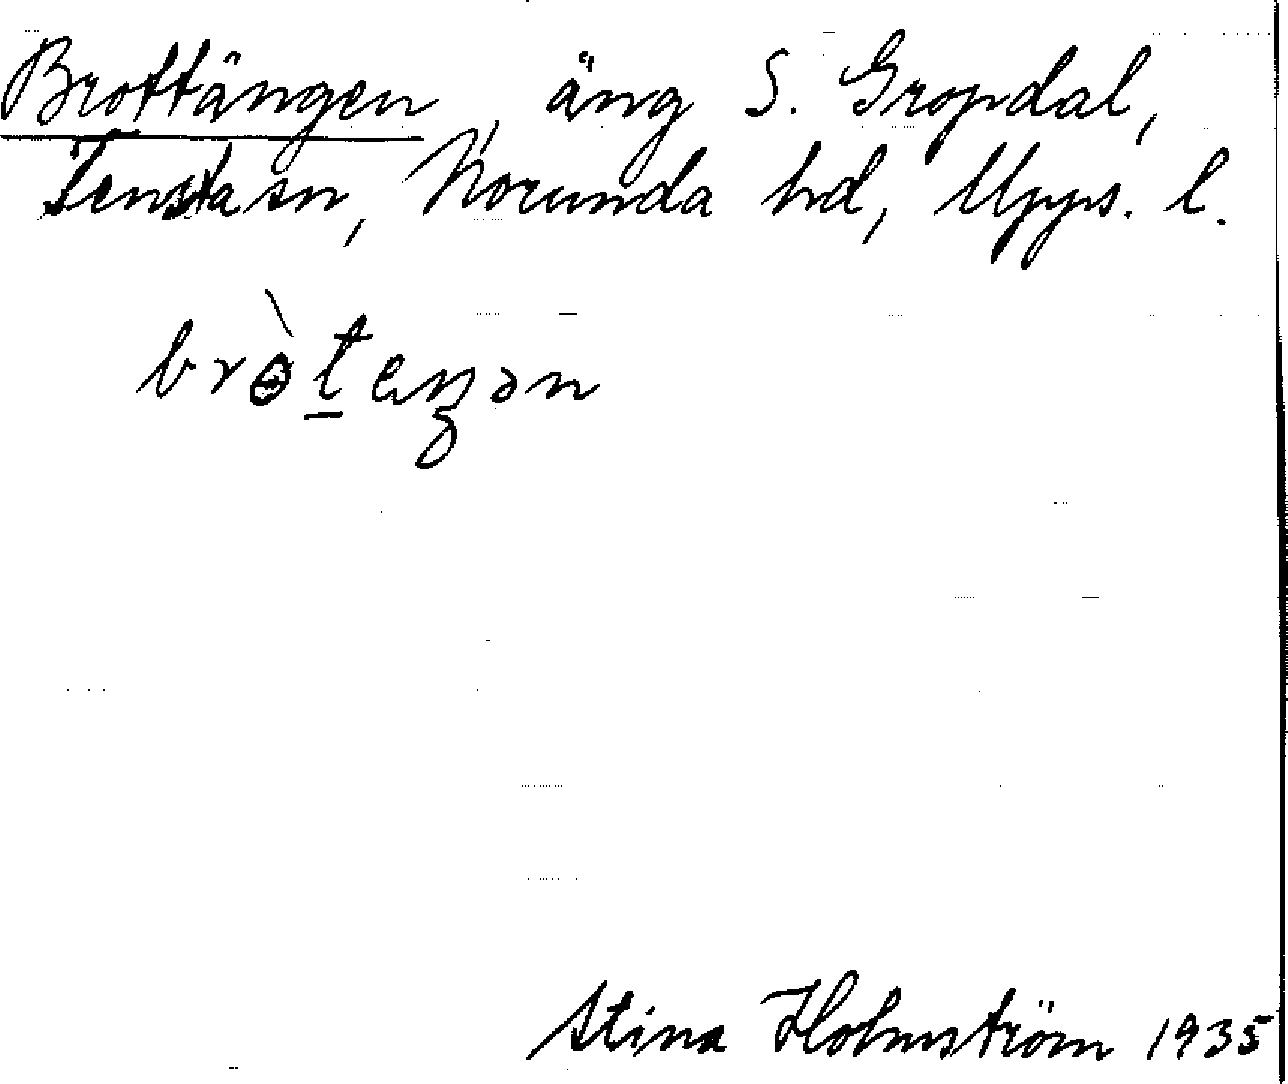 Brottängen, äng S. Gropdal,
Tensta sn, Norunda hd, Upps. l.
brɵ̀t̠eŋən
Stina Holmström 1935